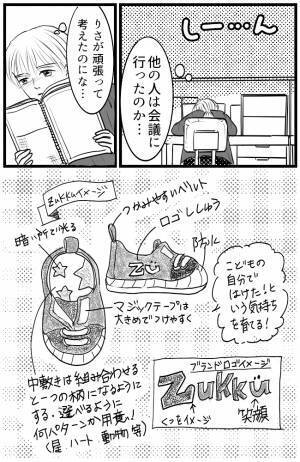 しーーん…
他の人は会議に
行ったのか…
りさが頑張って
考えたのにな…
Zukkuイメージ
つかみやすいベルト
ロゴししゅう
暗い所で光る
ZÜ
防水
マジックテープは
大きめでつけやすく
こどもの
自分で
はけた!と
いう気持ち
を育てる!
中敷きは組み合わせる
と一つの柄になるように
する。選べるように
何パターンか用意!
(星 ハート 動物 等)
ブランドロゴイメージ
ZUKKÜ
くつをイメージ
笑顔